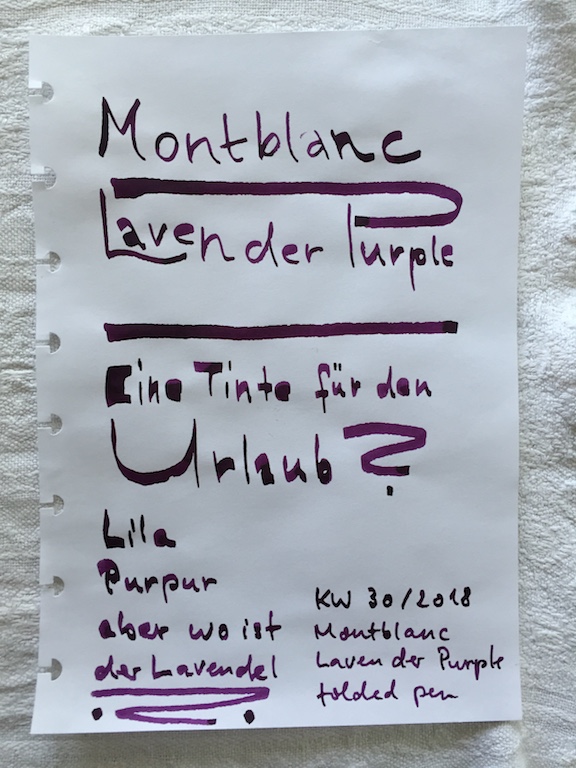 Montblanc
Lavender Purple
Eine Tinte für den
Urlaub?
Lila
Purpur
aber wo ist
der Lavendel
KW 30/2018
Montblanc
Lavender Purple
folded pen